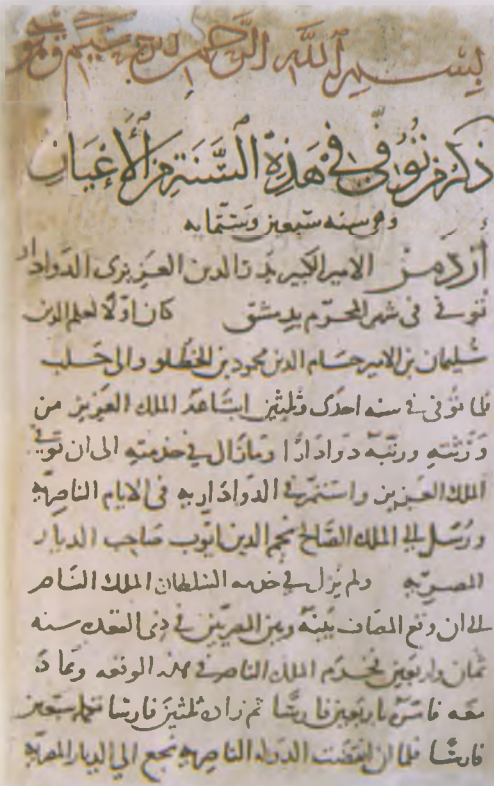 بسم الله الرحمن الرحيم
ذكر من توفى في هذه السنة من الأعيان
وهي سنه سبعين وستمايه
أزدمر الامير الكبير بدر الدين العزيزى الدوادار
توفى فى شهر المحرم بدمشق كان اولا لعلم الدين
سليمان بن الامير حسام الدين محمود بن الخطلو والى حلب
فلما توفى فى سنه احدى وثلثين ابتاعه الملك العزيز من
ورثته ورتبه دوادارا ومازال في خدمته الى ان توفي
الملك العزيز واستمر في الدواداريه فى الايام الناصريه
ورسل الى الملك الصالح نجم الدين ايوب صاحب الديار
المصريه ولم يزل في خدمه السلطان الملك الناصر
الى ان وقع المصاف بينه وبين المصريين في ذى القعده سنه
ثمان واربعين فخدم الملك الناصر في هذه الوقعه
معه باربعين فارسا ثم زاده ثلثين فارسا سبعين
فارسا فلما ان انقضت الدوله الناصريه رجع الى الديار المصريه